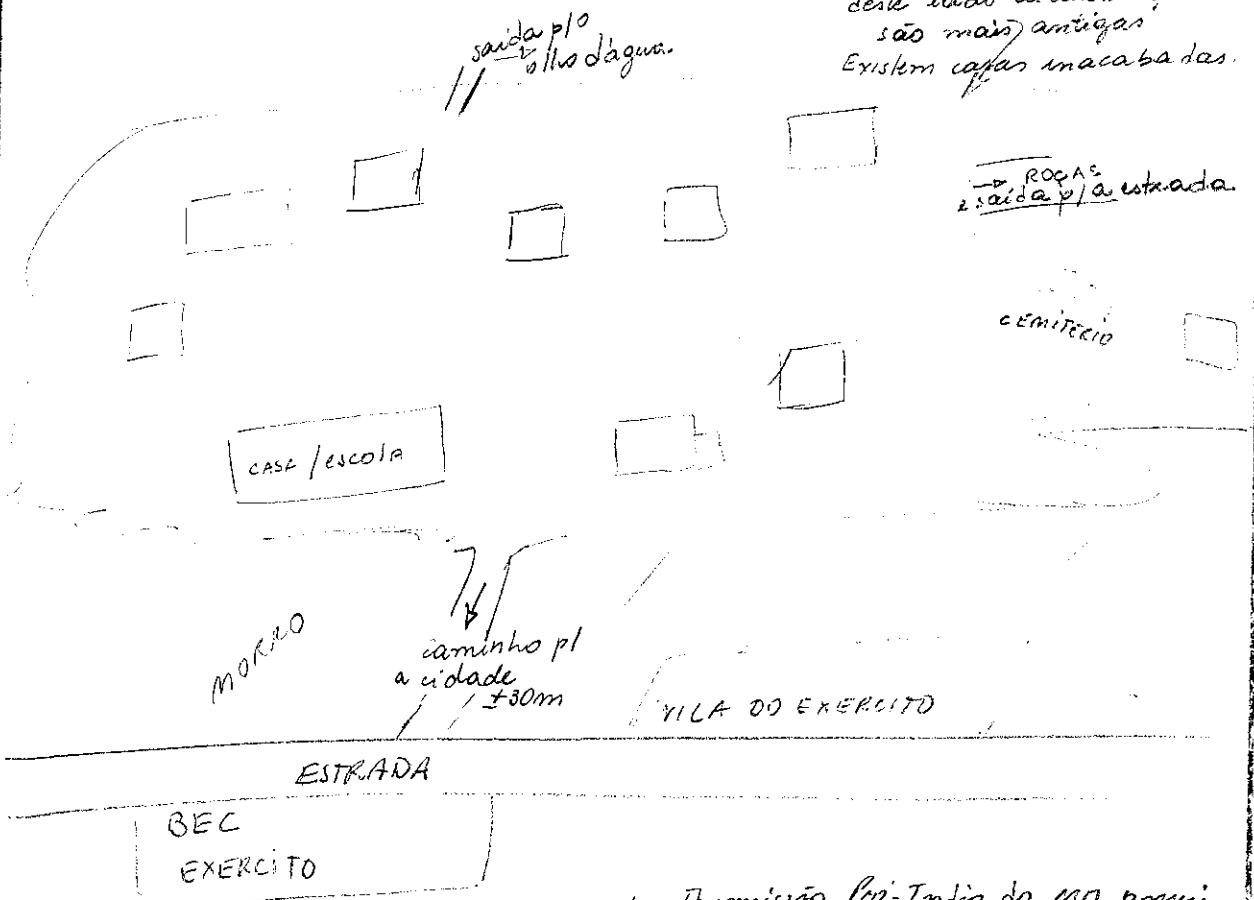 deste lado
são mais antigas
Existem casas inacabadas.
saída p/o
olho d'água.
→ ROÇAS
e saída p/a estrada
CEMITÉRIO
CASA / escola
MORRO
caminho p/
a cidade
±30m
VILA DO EXERCITO
ESTRADA
BEC
EXERCITO